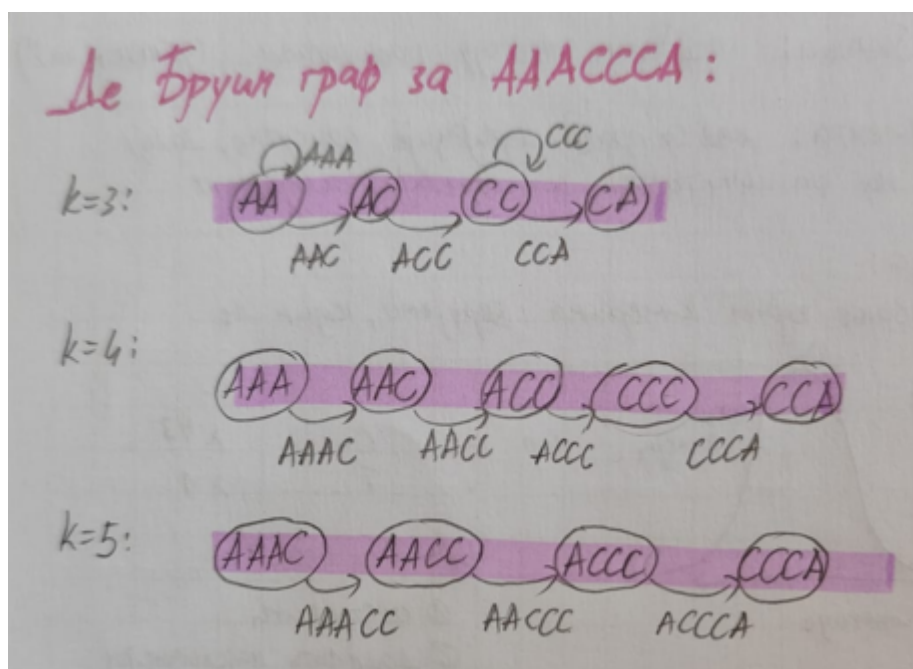 Де Бруин граф за AAACCCA:
AAA CCC
k=3: AA AC CC CA
AAC ACC CCA
k=4: AAA AAC ACC CCC CCA
AAAC AACC ACCC CCCA
k=5: AAAC AACC ACCC CCCA
AAACC AACCC ACCCA